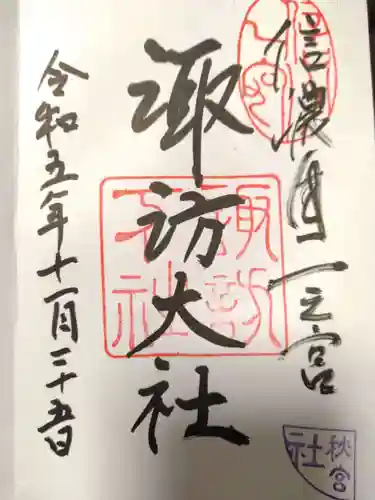 信濃國一之宮
諏訪大社
令和五年十一月二十五日
諏訪
大社
秋宮
社